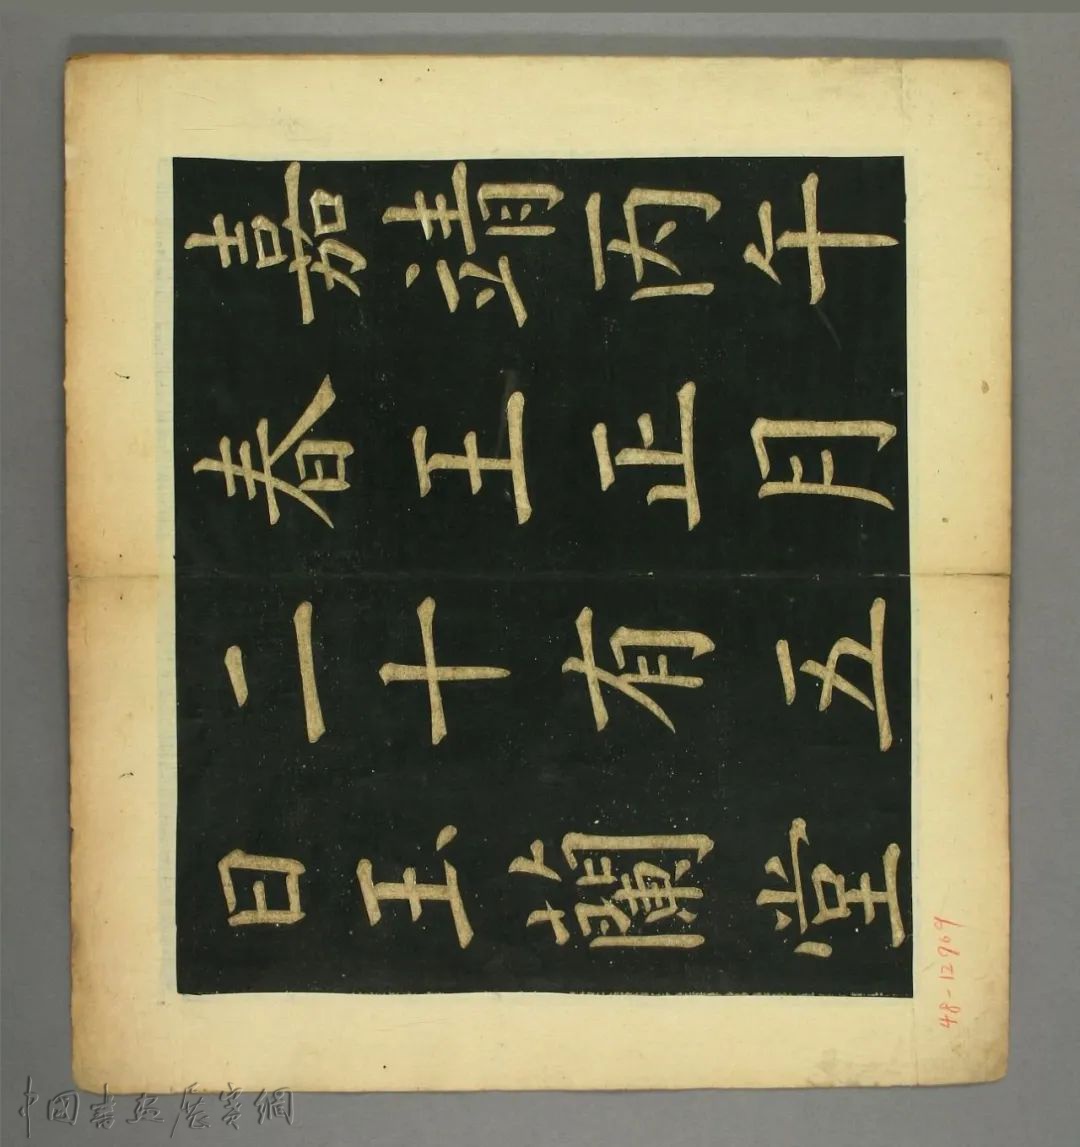 嘉靖丙午
春王正月
二十有五
日玉蘭堂
48-12969
中國書畫展賽網